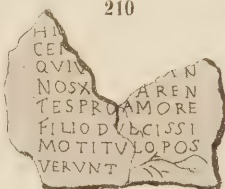 210
HI
CEI
QVIV IN
NOSX AREN
TESPROAMORE
FILIODVLCISSI
MOTITVLOPOS
VERVNT